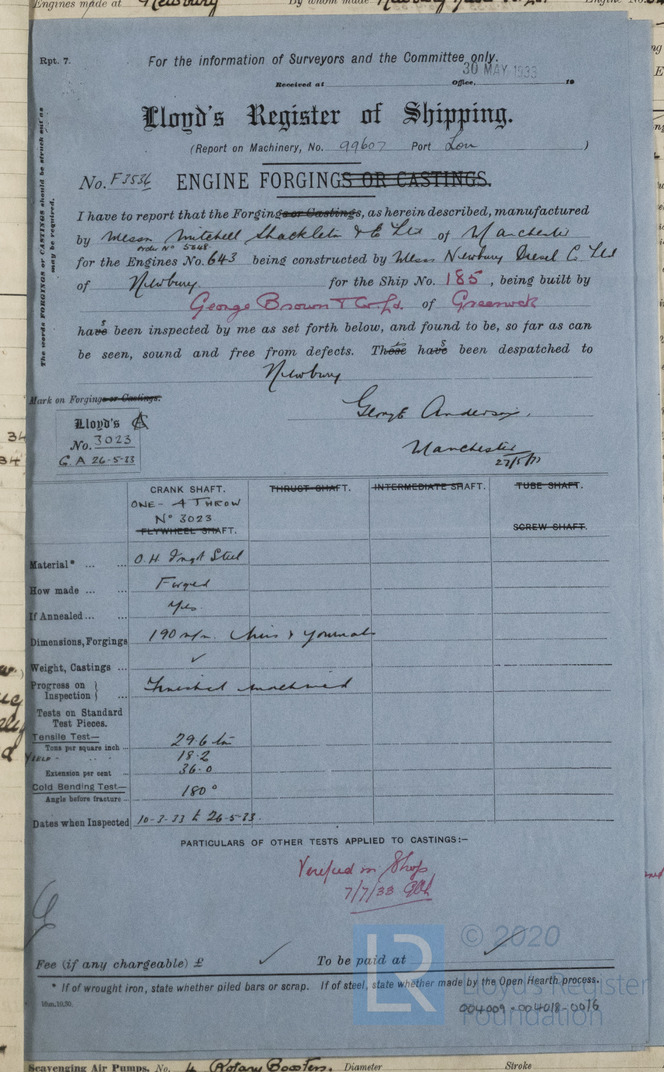 Engines made at Newbury By whom made Newbury
Rpt. 7.
For the information of Surveyors and the Committee only.
30 MAY 1933
Received at Office, 19
Lloyd's Register of Shipping.
(Report on Machinery, No. 99607 Port Lon )
No. F3536 ENGINE FORGINGS OR CASTINGS.
The words FORGINGS or CASTINGS should be struck out as may be required.
I have to report that the Forgings or Castings, as herein described, manufactured
by Messrs Mitchell Shackleton & Co Ltd of Manchester
order No 5848
for the Engines No. 643 being constructed by Messrs Newbury Diesel C Ltd
of Newbury for the Ship No. 185, being built by
George Brown & Co Ld. of Greenock
has been inspected by me as set forth below, and found to be, so far as can
be seen, sound and free from defects. These have been despatched to
Newbury
Mark on Forgings or Castings.
George Anderson.
Lloyd's
No. 3023
G.A 26-5-33
Manchester
27/5/33
CRANK SHAFT. THRUST SHAFT. INTERMEDIATE SHAFT. TUBE SHAFT.
ONE - 4 THROW
No 3023
FLYWHEEL SHAFT. SCREW SHAFT.
Material* ... ... O.H. Ingot Steel
How made ... Forged
If Annealed ... ... Yes
Dimensions, Forgings 190 m/m. Pins & Journals
Weight, Castings ... ✓
Progress on Inspection } ... Finished machined
Tests on Standard
Test Pieces.
Tensile Test— 29.6
Tons per square inch ...
Yield - 18.2
Extension per cent 36.0
Cold Bending Test— 180°
Angle before fracture ...
Dates when Inspected 10-3-33 to 26-5-33.
PARTICULARS OF OTHER TESTS APPLIED TO CASTINGS:—
Verified in Shops
7/7/33
Fee (if any chargeable) £ ✓ To be paid at ✓
© 2020
LR
Lloyd's Register
Foundation
* If of wrought iron, state whether piled bars or scrap. If of steel, state whether made by the Open Hearth process.
004009-004018-0016
Scavenging Air Pumps, No. 4 Rotary Boosters. Diameter Stroke